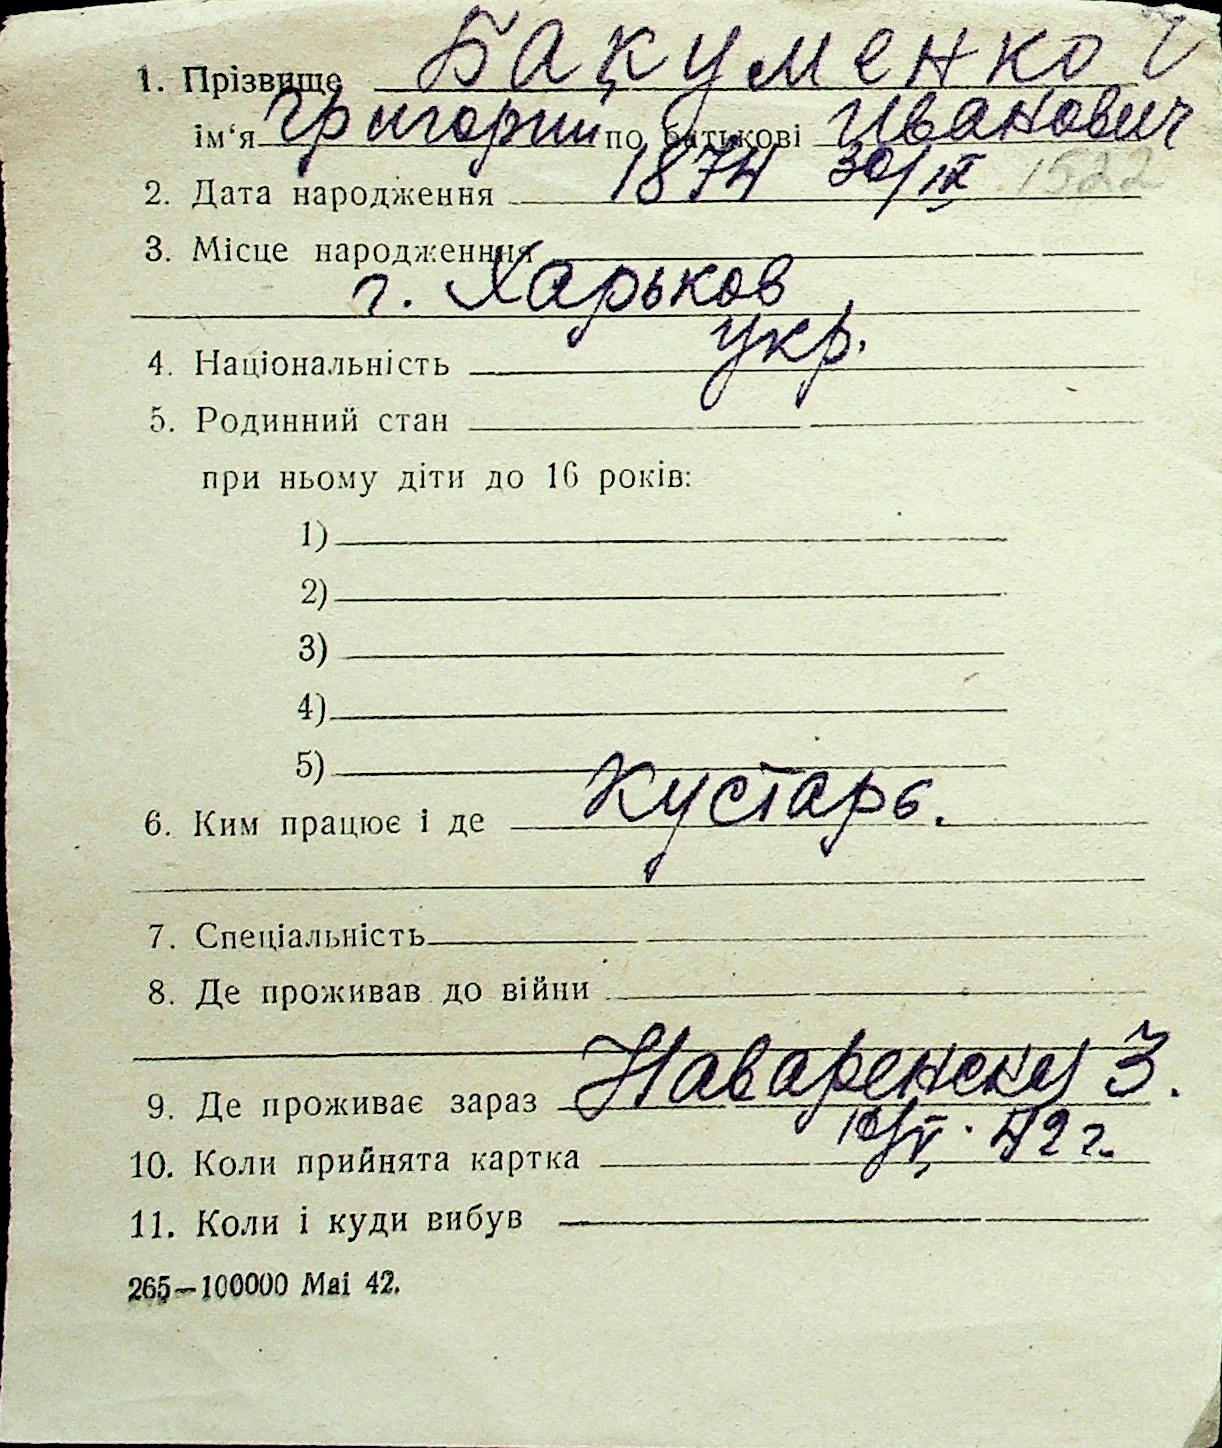 1. Прізвище Бакуменко
ім‘я Григорий по батькові Иванович
2. Дата народження 1874 30/IX 1522
3. Місце народженння
г. Харьков
4. Національність укр.
5. Родинний стан
при ньому діти до 16 років:
1)
2)
3)
4)
5)
6. Ким працює і де Кустарь.
7. Спеціальність
8. Де проживав до війни
9. Де проживає зараз 3.
10. Коли прийнята картка 42 г.
11. Коли і куди вибув
265—100000 Mai 42.